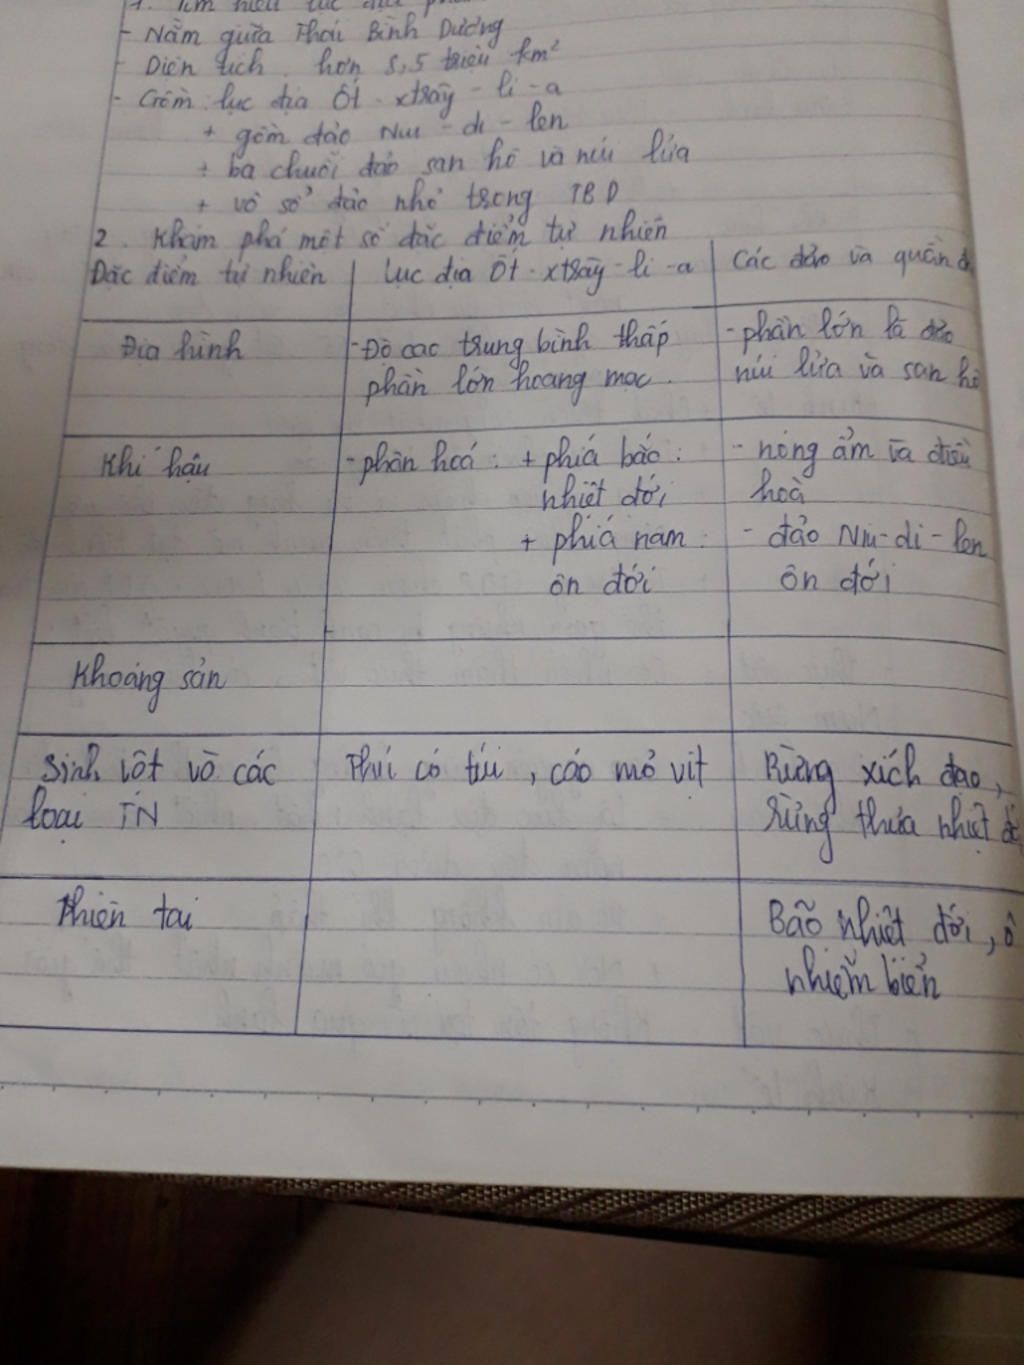 1. Tìm hiểu lục địa
- Nằm giữa Thái Bình Dương
- Diện tích hơn 8,5 triệu km²
- Gồm: lục địa Ốt - xtrây - li - a
+ gồm đảo Niu - di - len
+ ba chuỗi đảo san hô và núi lửa
+ vô số đảo nhỏ trong TBD
2. Khám phá một số đặc điểm tự nhiên
Đặc điểm tự nhiên | Lục địa Ốt - xtrây - li - a | Các đảo và quần
Địa hình | - Độ cao trung bình thấp | - phần lớn là đảo
phần lớn hoang mạc. | núi lửa và san hô
Khí hậu | - phân hoá: + phiá bắc: | - nóng ẩm và điều
nhiệt đới | hoà
+ phiá nam: | - đảo Niu - di - len
ôn đới | ôn đới
Khoáng sản
Sinh vật và các | Thú có túi, cáo mỏ vịt | Rừng xích đạo,
loại TN | rừng thưa nhiệt
Thiên tai | Bão nhiệt đới, ô
nhiễm biển